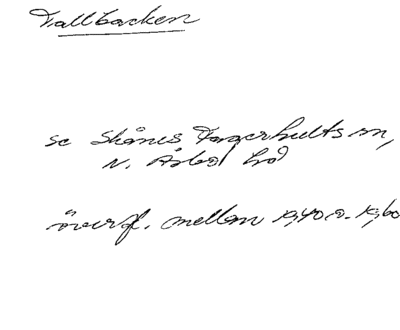 Tallbacken
se Skånes Fagerhults sn,
N. Åsbo hd
överfl. mellan 1940 o. 1960